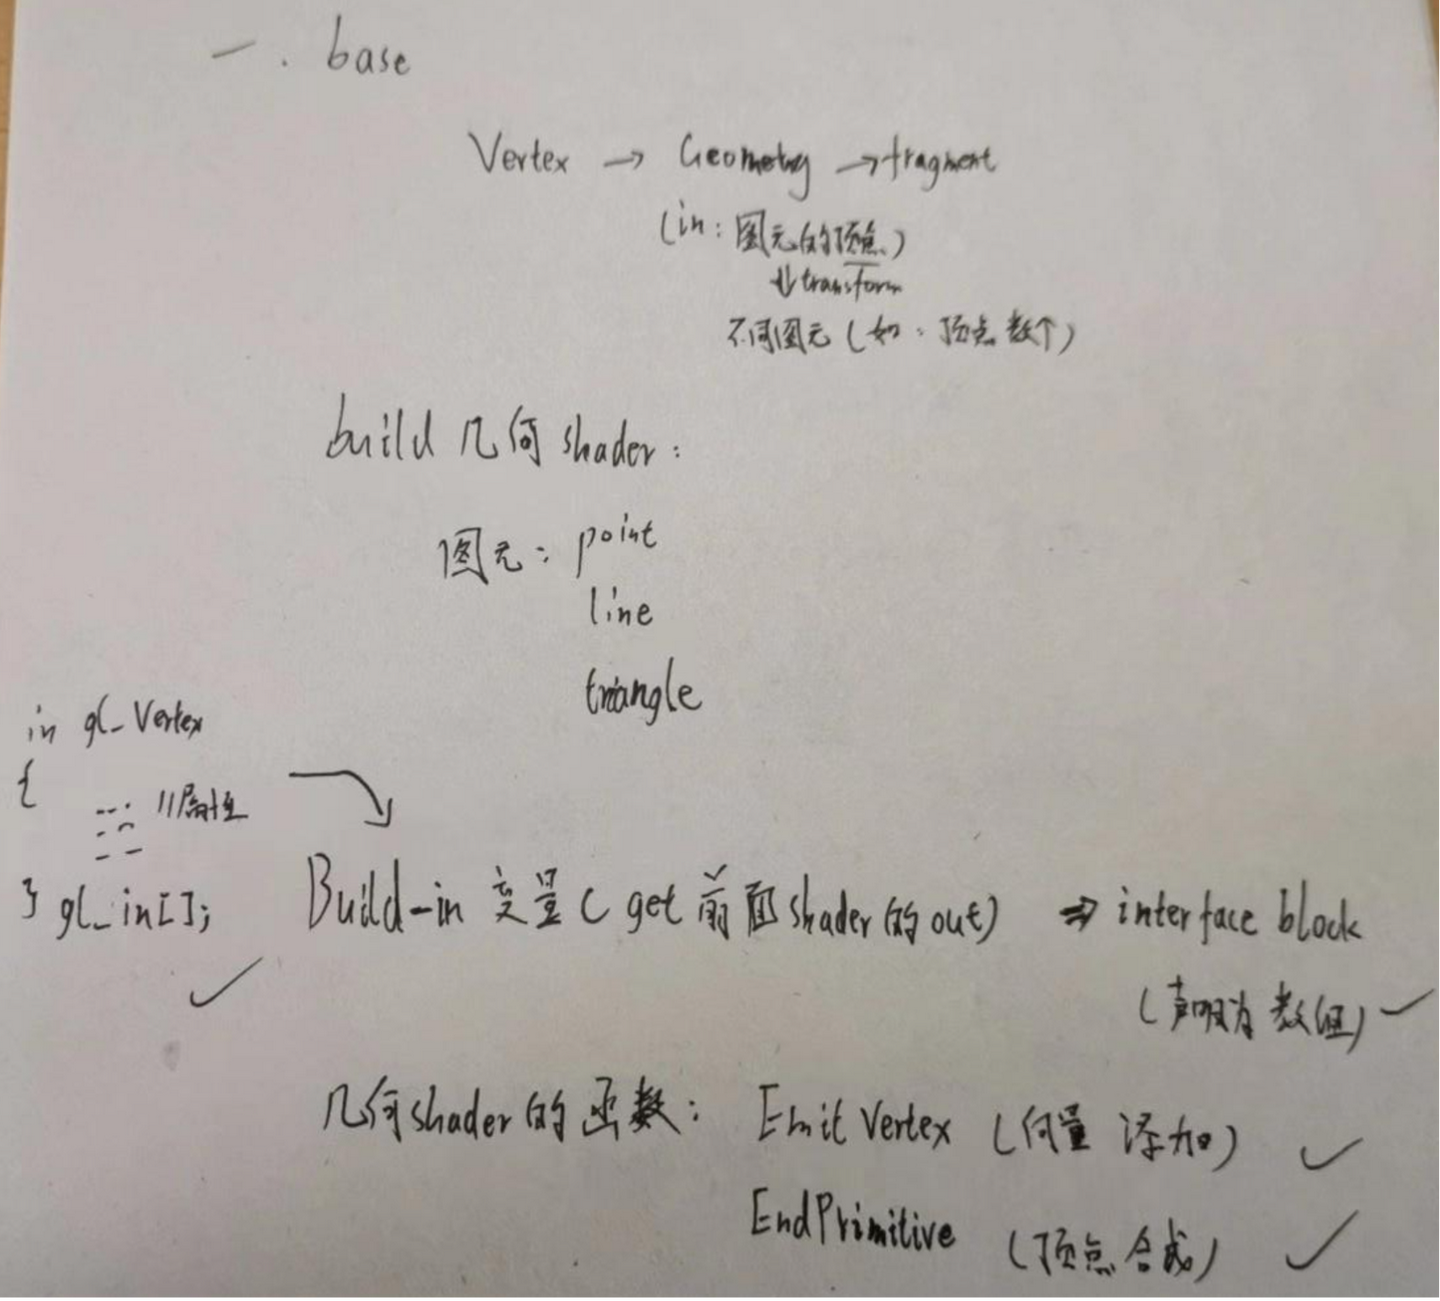 一. base
Vertex → Geometry → fragment
(in: 图元的顶点)
↓ transform
不同图元 (如: 顶点数个)
build 几何 shader:
图元: point
line
triangle
in gl_Vertex
{
//属性
} gl_in[];
Build-in 变量 ( get 前面 shader 的 out) ⇒ interface block
(声明为数组) ✓
几何shader的函数: EmitVertex (向量 添加) ✓
EndPrimitive (顶点合成) ✓